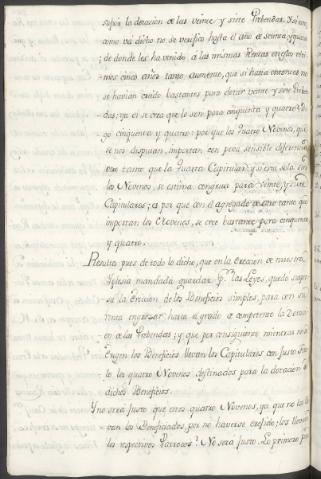 segun la dotacion de las veinte y siete Prebendas. Y si como
como va dicho no se verifico hasta el año de setenta y quatro
de donde les ha venido à las mismas Rentas en estos ulti-
mos cinco años tanto aumento, que si hasta entonces no
se havian creido bastantes para dotar veinte y siete Preben-
das; ya el se crea que lo sean para cinquenta y quatro? Di-
go cinquenta y quatro: por que los quatro Novenos, que
se nos disputan, importan con poca sensible diferencia
otro tanto que la Quarta Capitular: y si esta sola, sin
los Novenos, se estima congrua para veinte y siete
Capitulares; es por que con el agregado de otro tanto que
importan los Novenos, se cree bastante para cinquenta
y quatro.
Resulta pues de todo lo dicho, que en la Ereccion de nuestra
Iglesia mandada guardar por las Leyes, quedo suspen-
sa la Ereccion de los Beneficios simples, para con su
renta engrosar hasta el grado de competente la Dotaci-
on de las Prebendas; y que por consiguiente mientras no se
erigen los Beneficios llevan los Capitulares con justo titu-
lo los quatro Novenos destinados para la dotacion de
dichos Beneficios.
Y no sera justo que estos quatro Novenos, ya que no los lle-
van los Beneficiados por no haverse erigido; los lleven
los respectivos Parrocos? No sera justo. Lo primero por